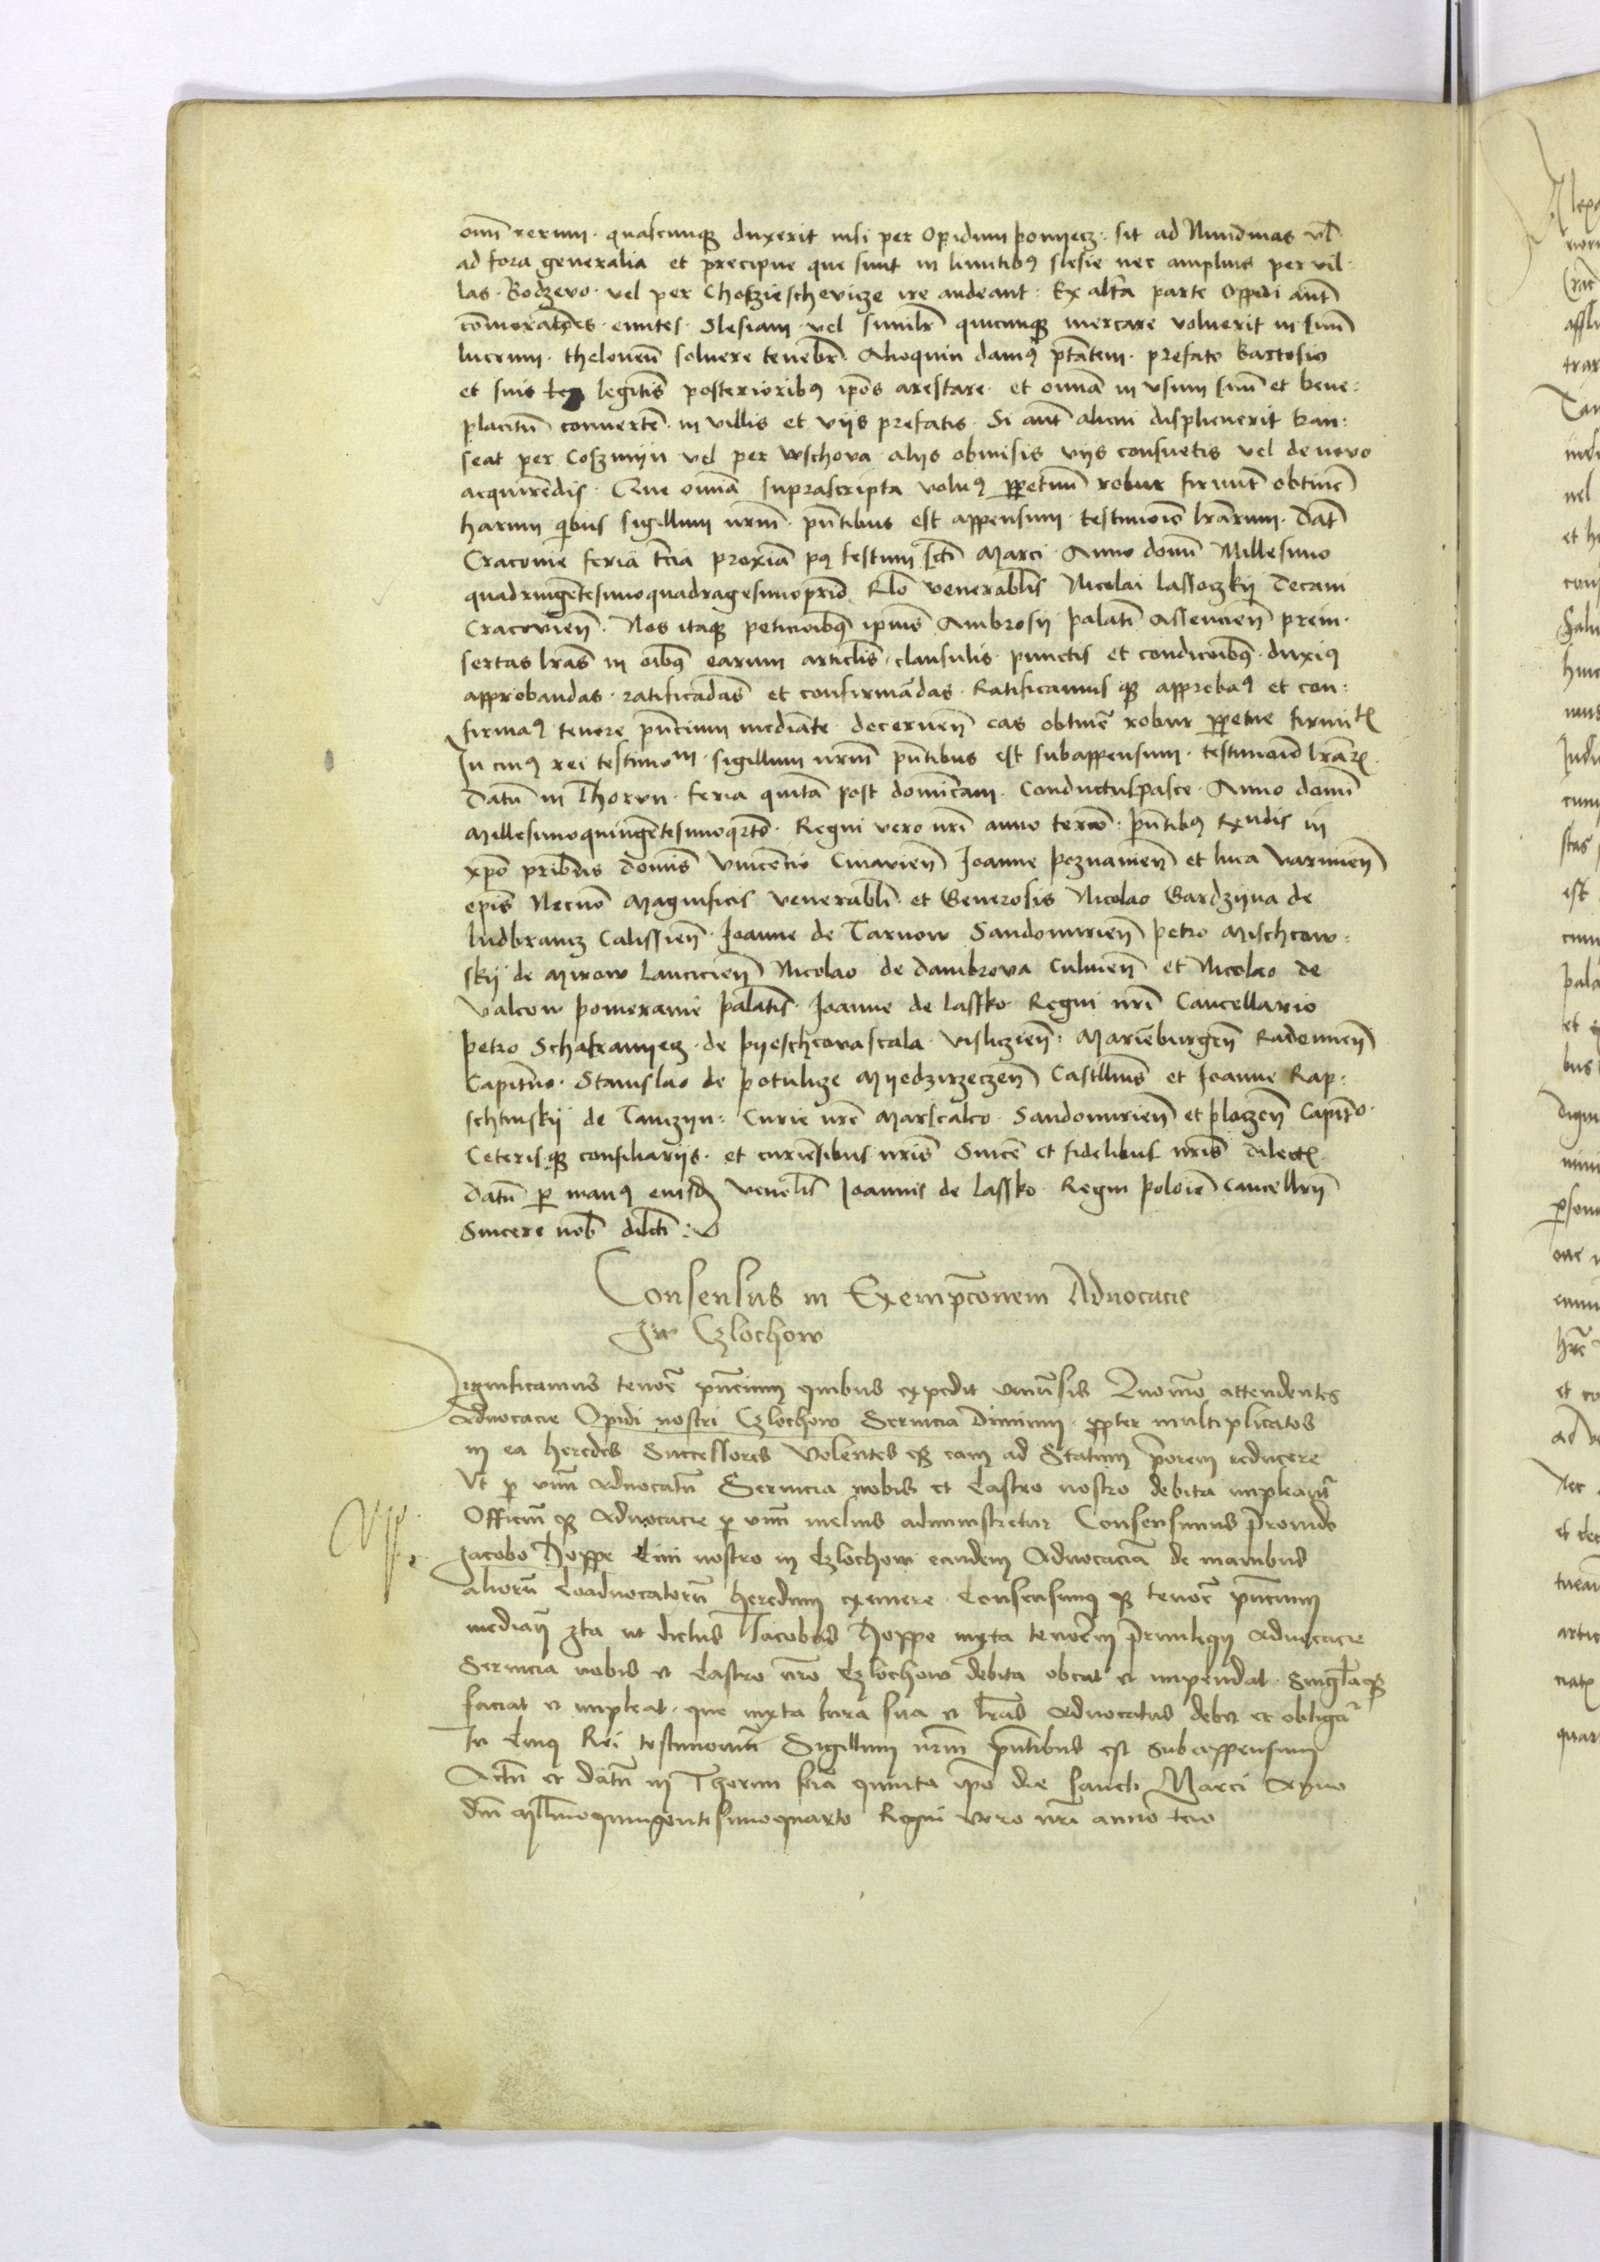 om̄ rerum · quascunq̃ duxerit nisi per Opidum ponyecz · sit ad Nundinas vl̃
ad fora generalia et precipue que sunt in limitibꝰ slesie nec amplius per vil-
las · Bodzevo · vel per Chofzieschevicze ire audeant · Ex alt̃a parte Oppidi aut̃
com̄orañtes · euntes · Slesiam · vel similr̃ quicunq̃ mercare voluerit in suũ
lucrum · theloneũ soluere teneb̃r · Alioquin damꝰ pt̃atem · prefato Bartosio
et suis legitĩs posterioribꝰ ip̃os arestare · et omnia in vsum suũ et bene-
placitũ conuertẽ · in villis et viis prefatis · Si aut̃ alicui displicuerit tran-
seat per Coszmyn vel per Wschova · aliis obmisis viis consuetis vel de novo
acquirẽdis · Que om̃ia suprascripta volũꝰ ꝑpetuũ robur firmit̃ obtinẽ
harum q̃bus sigillum nr̃m · pñtibus est appensum · testimoĩo lr̃arum · Dat̃
Cracovie feria t̃cia proxĩa pꝰ festum sct̃i Marci · Anno domĩ Millesimo
quadringẽtesimoquadragesimopr̃io · Rl̃o venerabl̃is Nicolai lassoczkij Decani
Cracovieñ · Nos itaq̃ peticioĩbꝰ ip̃ius Ambrosij palatĩ prein-
sertas lr̃as in oĩbꝰ earum articl̃is · clausulis · punctis et condicoĩbꝰ · duxiꝰ
approbandas · ratificãdas et confirmãdas · Ratificamus q̃ approbaꝰ et con-
firmaꝰ tenore pñcium mediãte · decerneñ eas obtinẽ robur ꝑpetue firmit̃
In cuiꝰ rei testimom · sigillum nr̃m pñtibus est subappensum · testimoĩo lr̃ar̃
Datũ in Thorvn · feria quĩta post domĩcam · Conductuspasce · Anno domĩ
Millesimoquingẽtesimoq̃rto · Regni vero nr̃i anno tercio · pñtibꝰ Rxndis in
xp̃o prĩbus domĩs Vincencio Cuiavieñ Joanne poznanieñ et luca Varmieñ
ep̃is Necnõ Magnificis venerabl̃i et Generosis Nicolao Gardzyna de
ludbrancz Calissieñ · Joanne de Tarnow Sandomirieñ petro Mischcow-
skij de Mirow Lancicieñ Nicolao de Dambrova Culmeñ et Nicolao de
Valcow pomeranie palatĩs · Joanne de lassko · Regni nr̃i Cancellario
petro Schafranyecz · de pyeschcovascala · Visliczieñ · Mariẽburgeñ Radomieñ
Capitño · Stanislao de potulicze Myedzirzeczeñ Castll̃nis et Joanne Rap-
schtinskij de Tanczyn · Curie nr̃e Marscalco · Sandomirieñ et ploczeñ Capit̃o ·
Ceteris q̃ consiliariis · et curiẽsibus nr̃is Sincẽ et fidelibus nr̃is dilect̃
Datũ ꝑ manꝰ eiusdẽ Venebl̃is Joannis de lassko · Regni poloĩe Cancellrii
Sincere nob̃ dilcti
Consensus in Exempc̃onem Advocacie
In Czlochow
Significamus tenor̃ pñcium quibus expedit vniũsis Quomõ attendentes
Advocacie Opidi nostri Czlochow Seruicia diminui · ꝓpter multiplicatos
in ea heredes Successores Volentes q̃ eam ad Statum p̃orem reducere
Vt ꝑ vnũ Advocatũ Seruicia nobis et Castro nostro debita impleant̃
Officiũ q̃ Advocacie ꝑ vnũ melius administretur Consensimus Prouido
Jacobo Hoppe Ciui nostro in Czlochow eandem Advocaciã de manibus
aliorũ Coadvocatorũ heredum eximere Consensimꝰ q̃ tenor̃ pñcium
mediañ Ita vt dictus Jacobus Hoppe iuxta tenorẽ Privilegii Advocacie
Seruicia nobis et Castro nr̃o Czlochow debita obeat et impendat · Singl̃aq̃
faciat et impleat · que iuxta Iura sua et lr̃as Advocatus debet et obligat̃
In Cuiꝰ Rei testimoniũ Sigillum nr̃m pñtibus est Subappensum
Actũ et datũ in Thorun feria quinta ip̃o die sancti Marci Anno
dñi Mll̃moquingentesimoquarto Regni vero nr̃i anno tcio